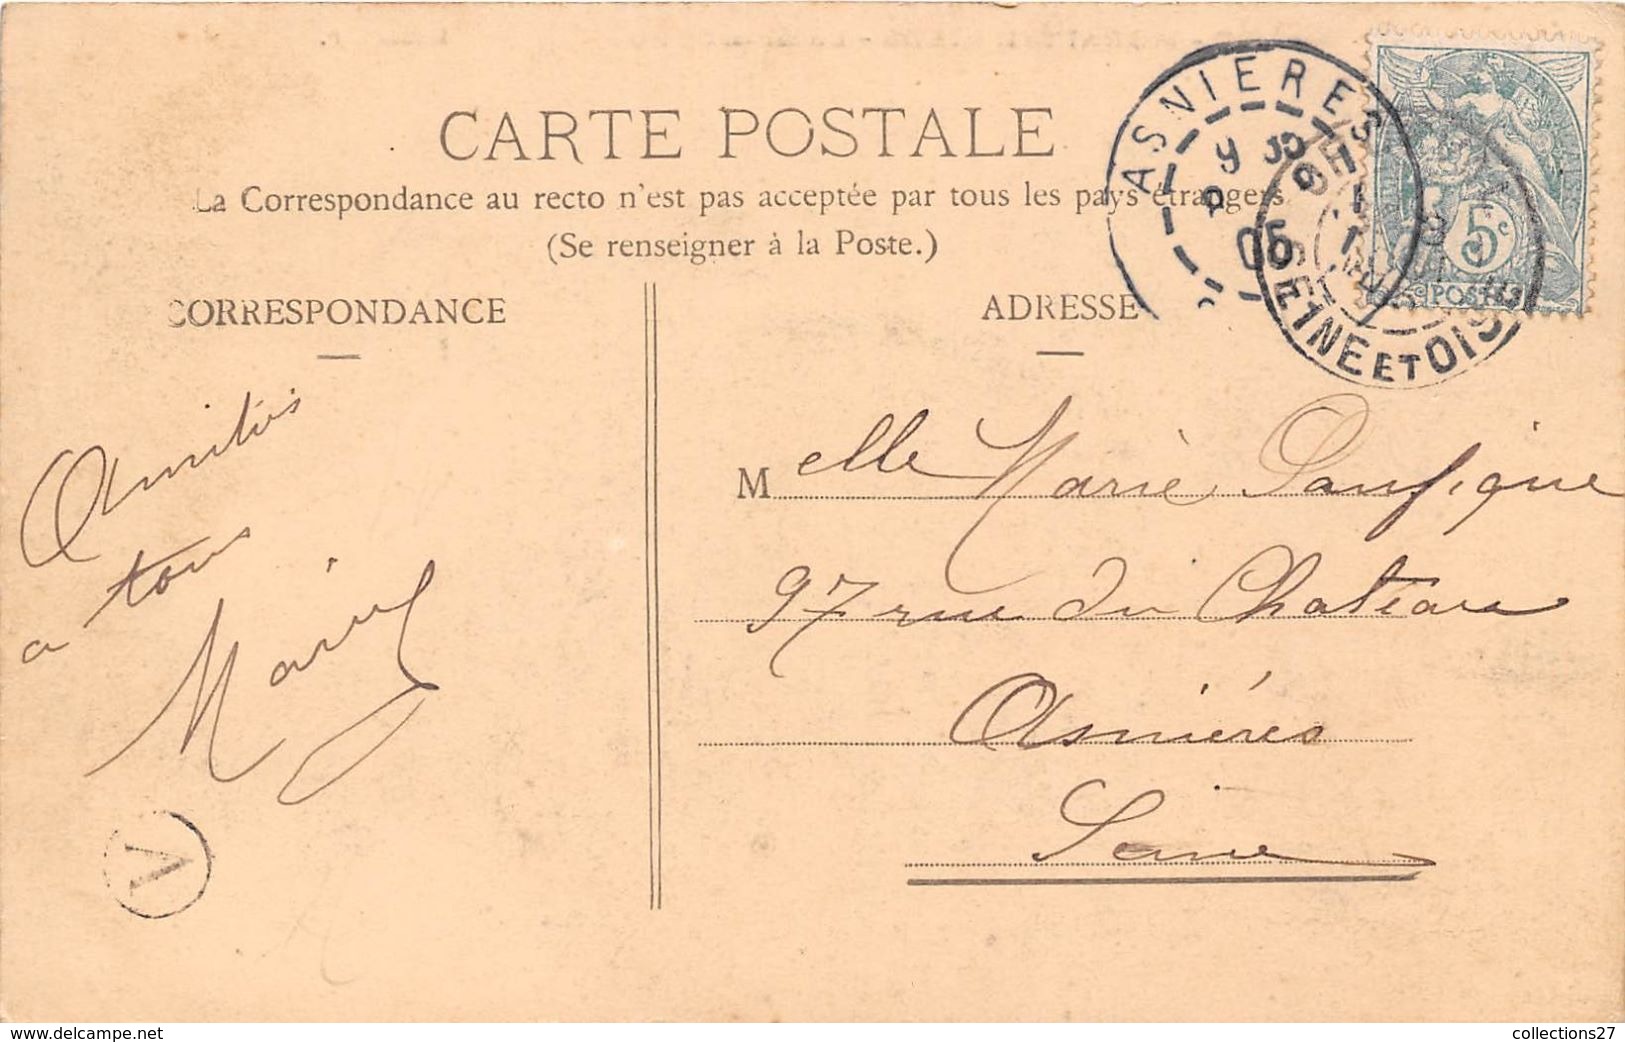 CARTE POSTALE
La Correspondance au recto n'est pas acceptée par tous les pays étrangers
(Se renseigner à la Poste.)
CORRESPONDANCE
ADRESSE
ASNIERES
05
SEINE ET OISE
5c
POSTES
Amitiés
a tous
Marie
A
Melle Marie
97 rue du Chateau
Asniérés
Seine
collections27